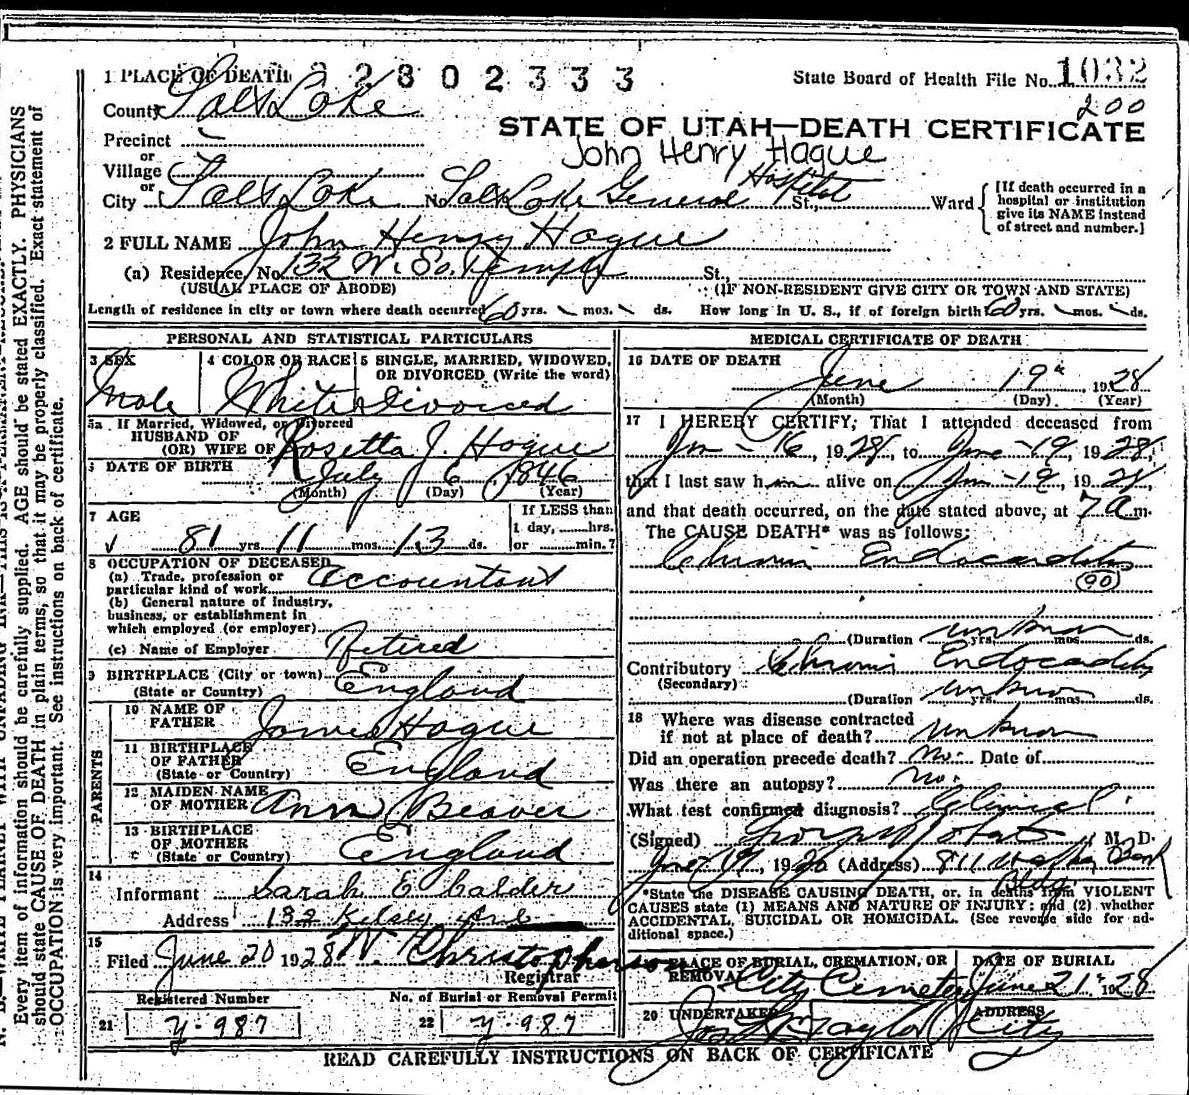 1 PLACE OF DEATH 2 2 8 0 2 3 3 3
State Board of Health File No. 1032
200
County Salt Lake
STATE OF UTAH—DEATH CERTIFICATE
Precinct
John Henry Hague
or
Village
or
City Salt Lake No. Salt Lake General Hospital St., Ward
[If death occurred in a hospital or institution give its NAME instead of street and number.]
2 FULL NAME John Henry Hague
(a) Residence, No. 132 W. So. Temple St.,
(USUAL PLACE OF ABODE) (IF NON-RESIDENT GIVE CITY OR TOWN AND STATE)
Length of residence in city or town where death occurred 60 yrs. mos. ds. How long in U. S., if of foreign birth 60 yrs. mos. ds.
PERSONAL AND STATISTICAL PARTICULARS
3 SEX 4 COLOR OR RACE 5 SINGLE, MARRIED, WIDOWED,
OR DIVORCED (Write the word)
Male White Divorced
5a If Married, Widowed, or Divorced
HUSBAND OF
(OR) WIFE OF Rosetta J. Hague
6 DATE OF BIRTH July 6 1846
(Month) (Day) (Year)
7 AGE If LESS than
1 day, hrs.
81 yrs. 11 mos. 13 ds. or min.?
8 OCCUPATION OF DECEASED
(a) Trade, profession or
particular kind of work Accountant
(b) General nature of industry,
business, or establishment in
which employed (or employer)
(c) Name of Employer Retired
9 BIRTHPLACE (City or town)
(State or Country) England
PARENTS
10 NAME OF
FATHER James Hague
11 BIRTHPLACE
OF FATHER England
(State or Country)
12 MAIDEN NAME
OF MOTHER Ann Beaver
13 BIRTHPLACE
OF MOTHER
(State or Country) England
14
Informant Sarah E Calder
Address 132 Kelsey Ave
15
Filed June 20 1928 W. Christopherson
Registrar
Registered Number No. of Burial or Removal Permit
21 Y-987 22 Y-987
MEDICAL CERTIFICATE OF DEATH
16 DATE OF DEATH
June 19th, 1928
(Month) (Day) (Year)
17 I HEREBY CERTIFY, That I attended deceased from
Jun - 16, 1928, to June - 19, 1928,
that I last saw him alive on Jun - 19, 1928,
and that death occurred, on the date stated above, at 7 a m.
The CAUSE DEATH* was as follows:
Chronic Endocarditis
90
(Duration unknown yrs. mos. ds.
Contributory Chronic Endocarditis
(Secondary)
(Duration unknown yrs. mos. ds.
18 Where was disease contracted
if not at place of death? unknown
Did an operation precede death? no. Date of
Was there an autopsy? no.
What test confirmed diagnosis? Clinical
(Signed) M. D.
June 19, 1928 (Address) 811 Walker Bank
Bldg
*State the DISEASE CAUSING DEATH, or, in deaths from VIOLENT
CAUSES state (1) MEANS AND NATURE OF INJURY; and (2) whether
ACCIDENTAL, SUICIDAL OR HOMICIDAL. (See reverse side for ad-
ditional space.)
PLACE OF BURIAL, CREMATION, OR DATE OF BURIAL
REMOVAL
City Cemetery June 21st 1928
20 UNDERTAKER ADDRESS
Taylor City
READ CAREFULLY INSTRUCTIONS ON BACK OF CERTIFICATE
Every item of information should be carefully supplied. AGE should be stated EXACTLY. PHYSICIANS
should state CAUSE OF DEATH in plain terms, so that it may be properly classified. Exact statement of
OCCUPATION is very important. See instructions on back of certificate.